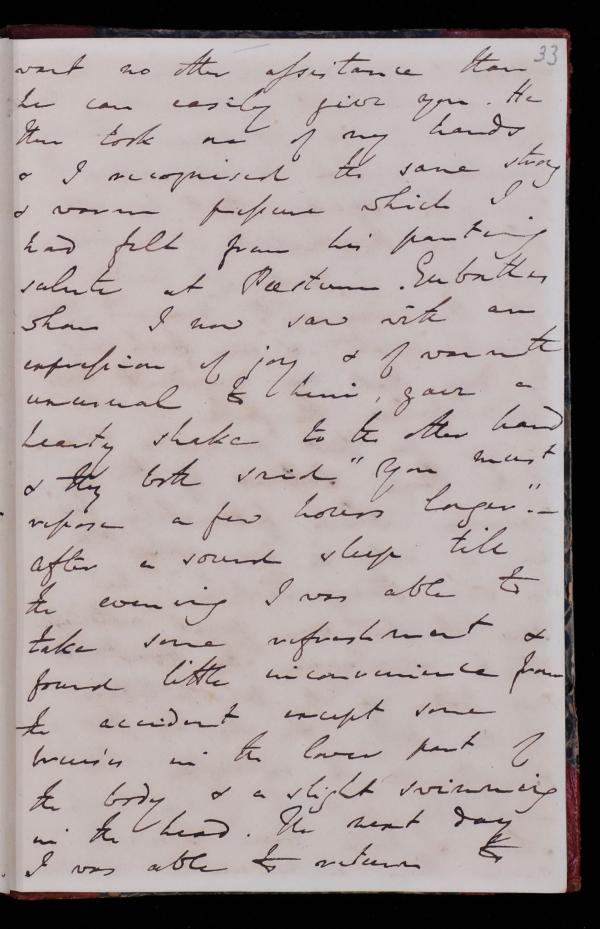 33
want no other assistance than
he can easily give you. He
then took one of my hands
& I recognised the same strong
& warm pressure which I
had felt from his parting
salute at Pæstum. Eubathes
whom I now saw with an
expression of joy & of warmth
unusual to him, gave a
hearty shake to the other hand
& they both said "You must
repose a few hours longer". –
after a sound sleep till
the evening I was able to
take some refreshment &
found little inconvenience from
the accident except some
bruises in the lower part of
the body & a slight swimming
in the head. The next day
I was able to return to